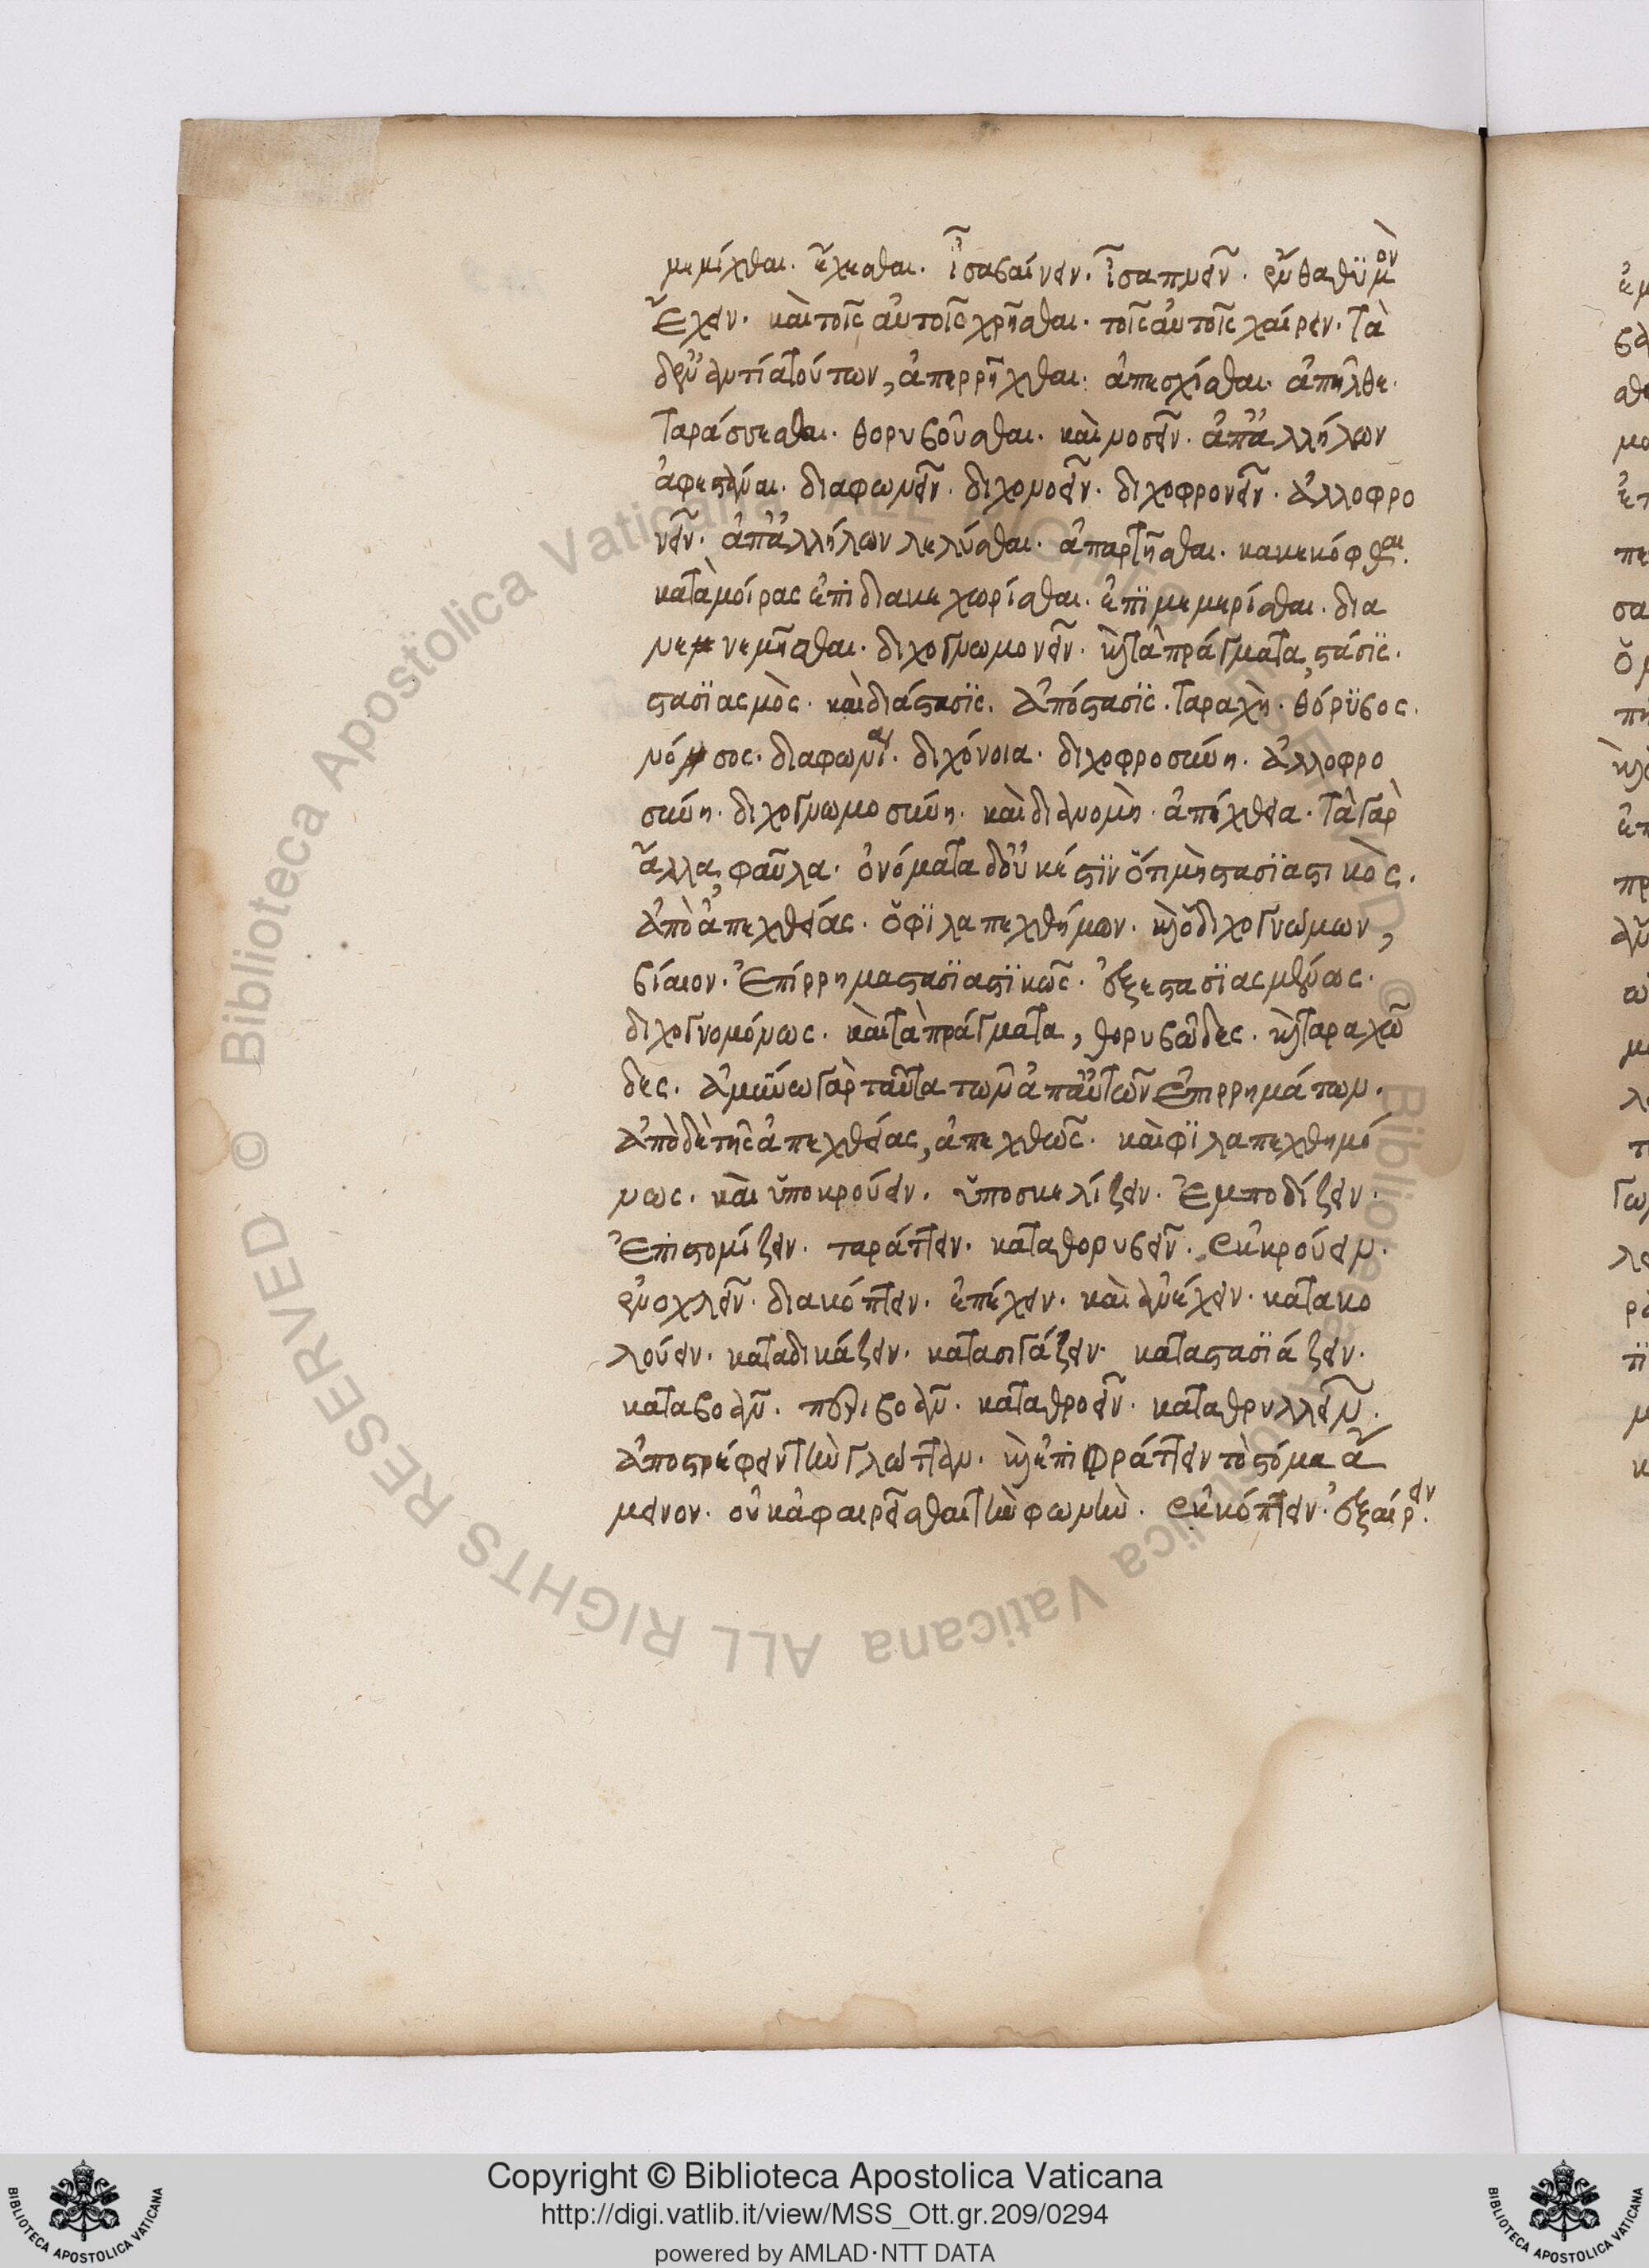 μεμίχθαι. ἔχεσθαι. ἴσα βαίνειν. ἴσα πνεῖν. ἐνθάθυμον
ἔχειν. καὶ τοῖς αὐτοῖς χρῆσθαι. τοῖς αὐτοῖς χαίρειν. τὰ
δ' ἐναντία τούτων, ἀπερρῆχθαι. ἀπεσχίσθαι. ἀπῆλθε.
ταράσσεσθαι. θορυβοῦσθαι. καὶ νοσεῖν. ἀπ' ἀλλήλων
ἀφεστάναι. διαφωνεῖν. διχονοεῖν. διχοφρονεῖν. ἀλλοφρο
νεῖν. ἀπ' ἀλλήλων λελύσθαι. ἀπαρτῆσθαι. κακεκόφθαι.
κατὰ μοίρας ἐπιδιακεχωρίσθαι. ἐπιμεμερίσθαι. δια
νενεμῆσθαι. διχογνωμονεῖν. καὶ τὰ πράγματα, στάσις.
στασιασμὸς. καὶ διάστασις. ἀπόστασις. ταραχὴ. θόρυβος.
νόσος. διαφωνία. διχόνοια. διχοφροσύνη. ἀλλοφρο
σύνη. διχογνωμοσύνη. καὶ διανομὴ. ἀπέχθεια. τὰ γὰρ
ἄλλα, φαῦλα. ὀνόματα δ' οὐκ ἔστιν ὅτι μὴ στασιαστικὸς.
ἀπὸ ἀπεχθείας. ὁ φιλαπεχθήμων. καὶ ὁ διχογνώμων,
βίαιον. ἐπίρρημα στασιαστικῶς. ἐξεστασιασμένως.
διχογνομόνως. καὶ τὰ πράγματα, θορυβώδες. καὶ ταραχῶ
δες. ἀμείνω γὰρ ταῦτα τῶν ἀπ' αὐτῶν ἐπιρρημάτων.
ἀπὸ δὲ τῆς ἀπεχθείας, ἀπεχθῶς. καὶ φιλαπεχθημό
νως. καὶ ὑποκρούειν. ὑποσκελίζειν. ἐμποδίζειν.
ἐπιστομίζειν. ταράττειν. καταθορυβεῖν. ἐκκρούειν.
ἐνοχλεῖν. διακόπτειν. ἐπέχειν. καὶ ἀνέχειν. κατακο
λούειν. καταδικάζειν. κατασιγάζειν. καταστασιάζειν.
καταβοᾶν. περιβοᾶν. καταθροεῖν. καταθρυλλεῖν.
ἀποστρέφειν τὴν γλῶτταν. καὶ ἐπιφράττειν τὸ στόμα ἄ
μεινον. οὐκ ἀφαιρεῖσθαι τὴν φωνὴν. ἐκκόπτειν. ἐξαίρειν.
Copyright © Biblioteca Apostolica Vaticana
http://digi.vatlib.it/view/MSS_Ott.gr.209/0294
powered by AMLAD·NTT DATA